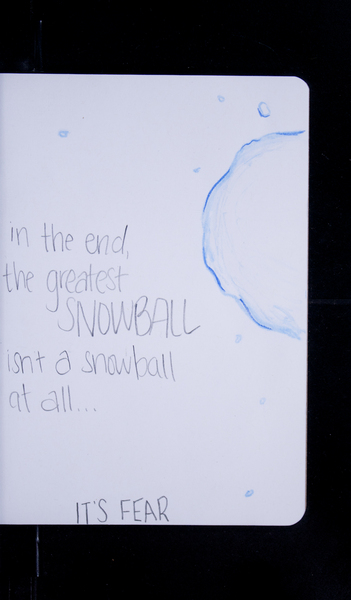 in the end,
the greatest
SNOWBALL
isnt a snowball
at all...
IT'S FEAR